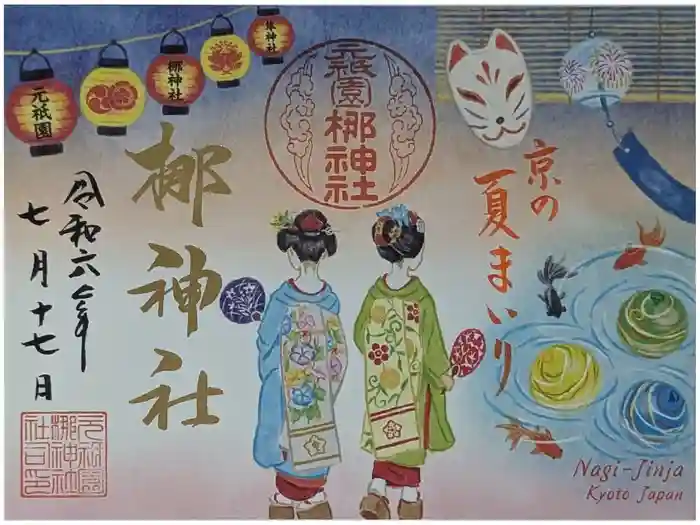 元祇園
梛神社
隼神社
元祇園
梛神社
京の
夏まいり
梛神社
令和六年
七月十七日
元祇園
梛神社
社印
Nagi-Jinja
Kyoto Japan